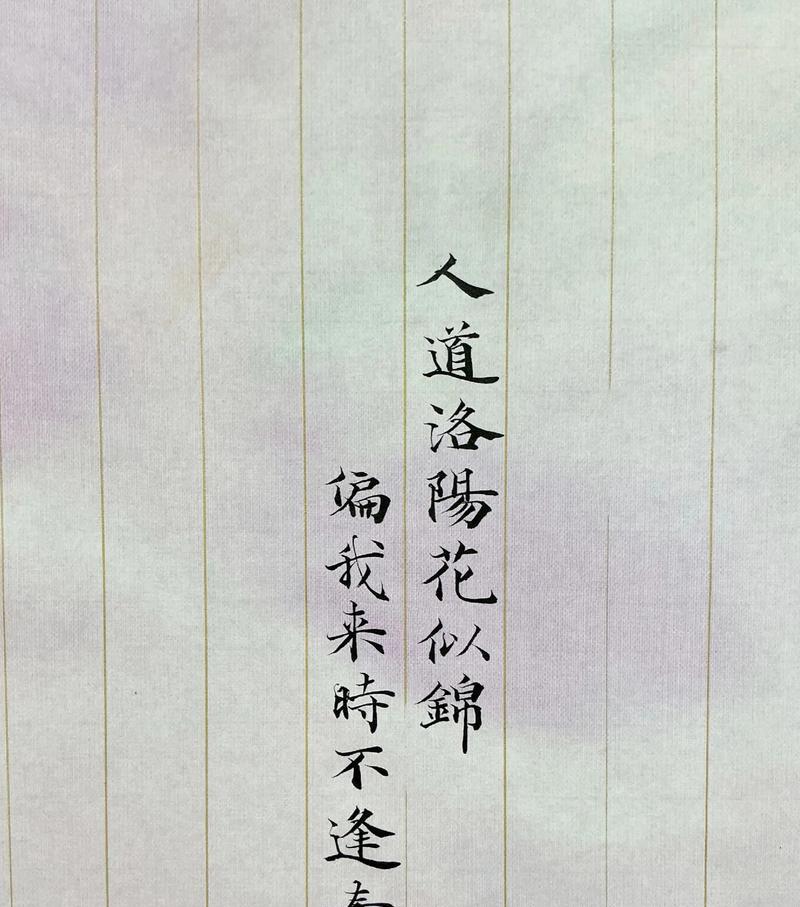 人道洛陽花似錦
偏我来時不逢